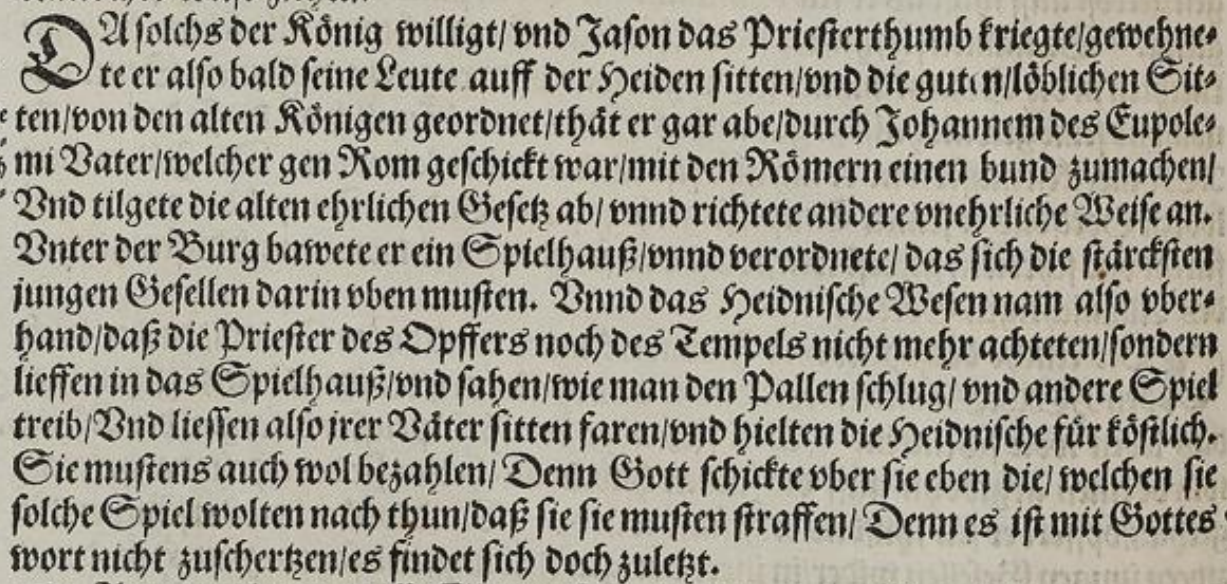 DA solchs der König willigt/ vnd Jason das Priesterthumb kriegte/gewehne-
te er also bald seine Leute auff der Heiden sitten/vnd die guten/löblichen Sit-
ten/von den alten Königen geordnet/thät er gar abe/durch Johannem des Eupole-
mi Vater/welcher gen Rom geschickt war/mit den Römern einen bund zumachen/
Vnd tilgete die alten ehrlichen Gesetz ab/ vnnd richtete andere vnehrliche Weise an.
Vnter der Burg bawete er ein Spielhauß/vnnd verordnete/ das sich die stärcksten
jungen Gesellen darin vben musten. Vnnd das Heidnische Wesen nam also vber-
hand/daß die Priester des Opffers noch des Tempels nicht mehr achteten/sondern
lieffen in das Spielhauß/vnd sahen/wie man den Pallen schlug/ vnd andere Spiel
treib/Vnd liessen also jrer Väter sitten faren/vnd hielten die Heidnische für köstlich.
Sie mustens auch wol bezahlen/ Denn Gott schickte vber sie eben die/ welchen sie
solche Spiel wolten nach thun/daß sie sie musten straffen/ Denn es ist mit Gottes
wort nicht zuschertzen/es findet sich doch zuletzt.